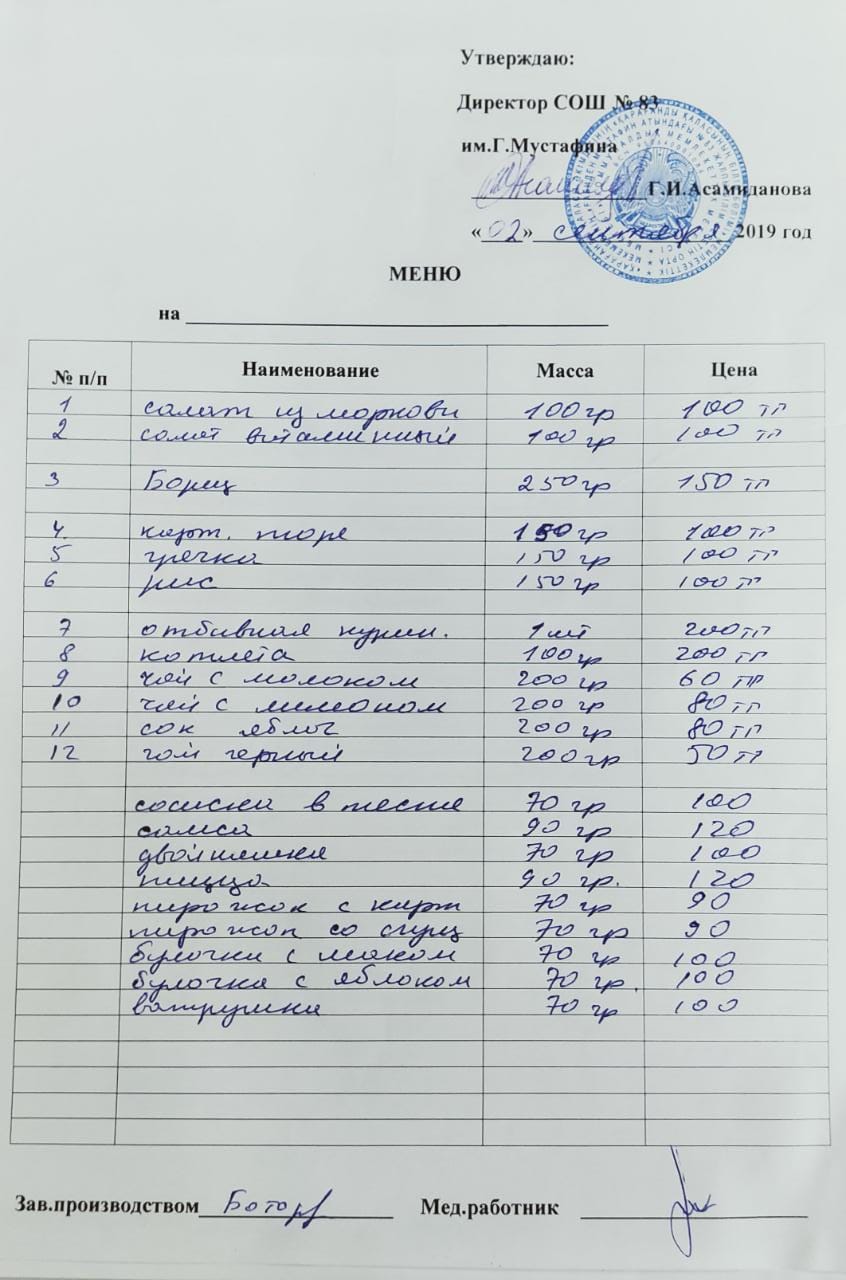 Утверждаю:
Директор СОШ № 83
им.Г.Мустафина
Г.И.Асамиданова
«02» сентября 2019 год
МЕНЮ
на
№ п/п Наименование Масса Цена
1 салат из моркови 100 гр 100 тг
2 салат витаминный 100 гр 100 тг
3 Борщ 250 гр 150 тг
4 карт. пюре 150 гр 100 тг
5 гречка 150 гр 100 тг
6 рис 150 гр 100 тг
7 отбивная курин. 1 шт 200 тг
8 котлета 100 гр 200 тг
9 чай с молоком 200 гр 60 тг
10 чай с лимоном 200 гр 80 тг
11 сок яблоч 200 гр 80 тг
12 чай черный 200 гр 50 тг
сосиска в тесте 70 гр 100
самса 90 гр 120
двойняшка 70 гр 100
пицца 90 гр. 120
пирожок с карт 70 гр 90
пирожок со сгущ 70 гр 90
булочка с маком 70 гр 100
булочка с яблоком 70 гр. 100
ватрушка 70 гр 100
Зав.производством Мед.работник